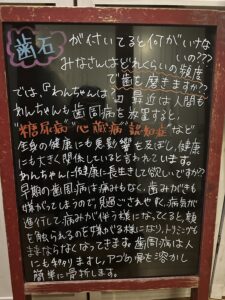 歯石 が付いてると何がいけな
いの???
みなさんはどれくらいの頻度
で歯を磨きますか??
では、『わんちゃんは 最近は人間も
わんちゃんも歯周病を放置すると、
糖尿病"心臓病"認知症"など
全身の健康にも悪影響を及ぼし、健康
にも大きく関係していると言われています。
わんちゃんに健康に長生きして欲しいですが?
早期の歯周病は痛みもなく、歯みがきも
嫌がってしまうので、見過ごされやすく、病気が
進行して、痛みが伴う様になってくると、頬
を触られるのを嫌がる様になり、トリミングも
ままならなくなってきます。歯周病は人
にも移りますし、アゴの骨を溶かし
簡単に骨折します。